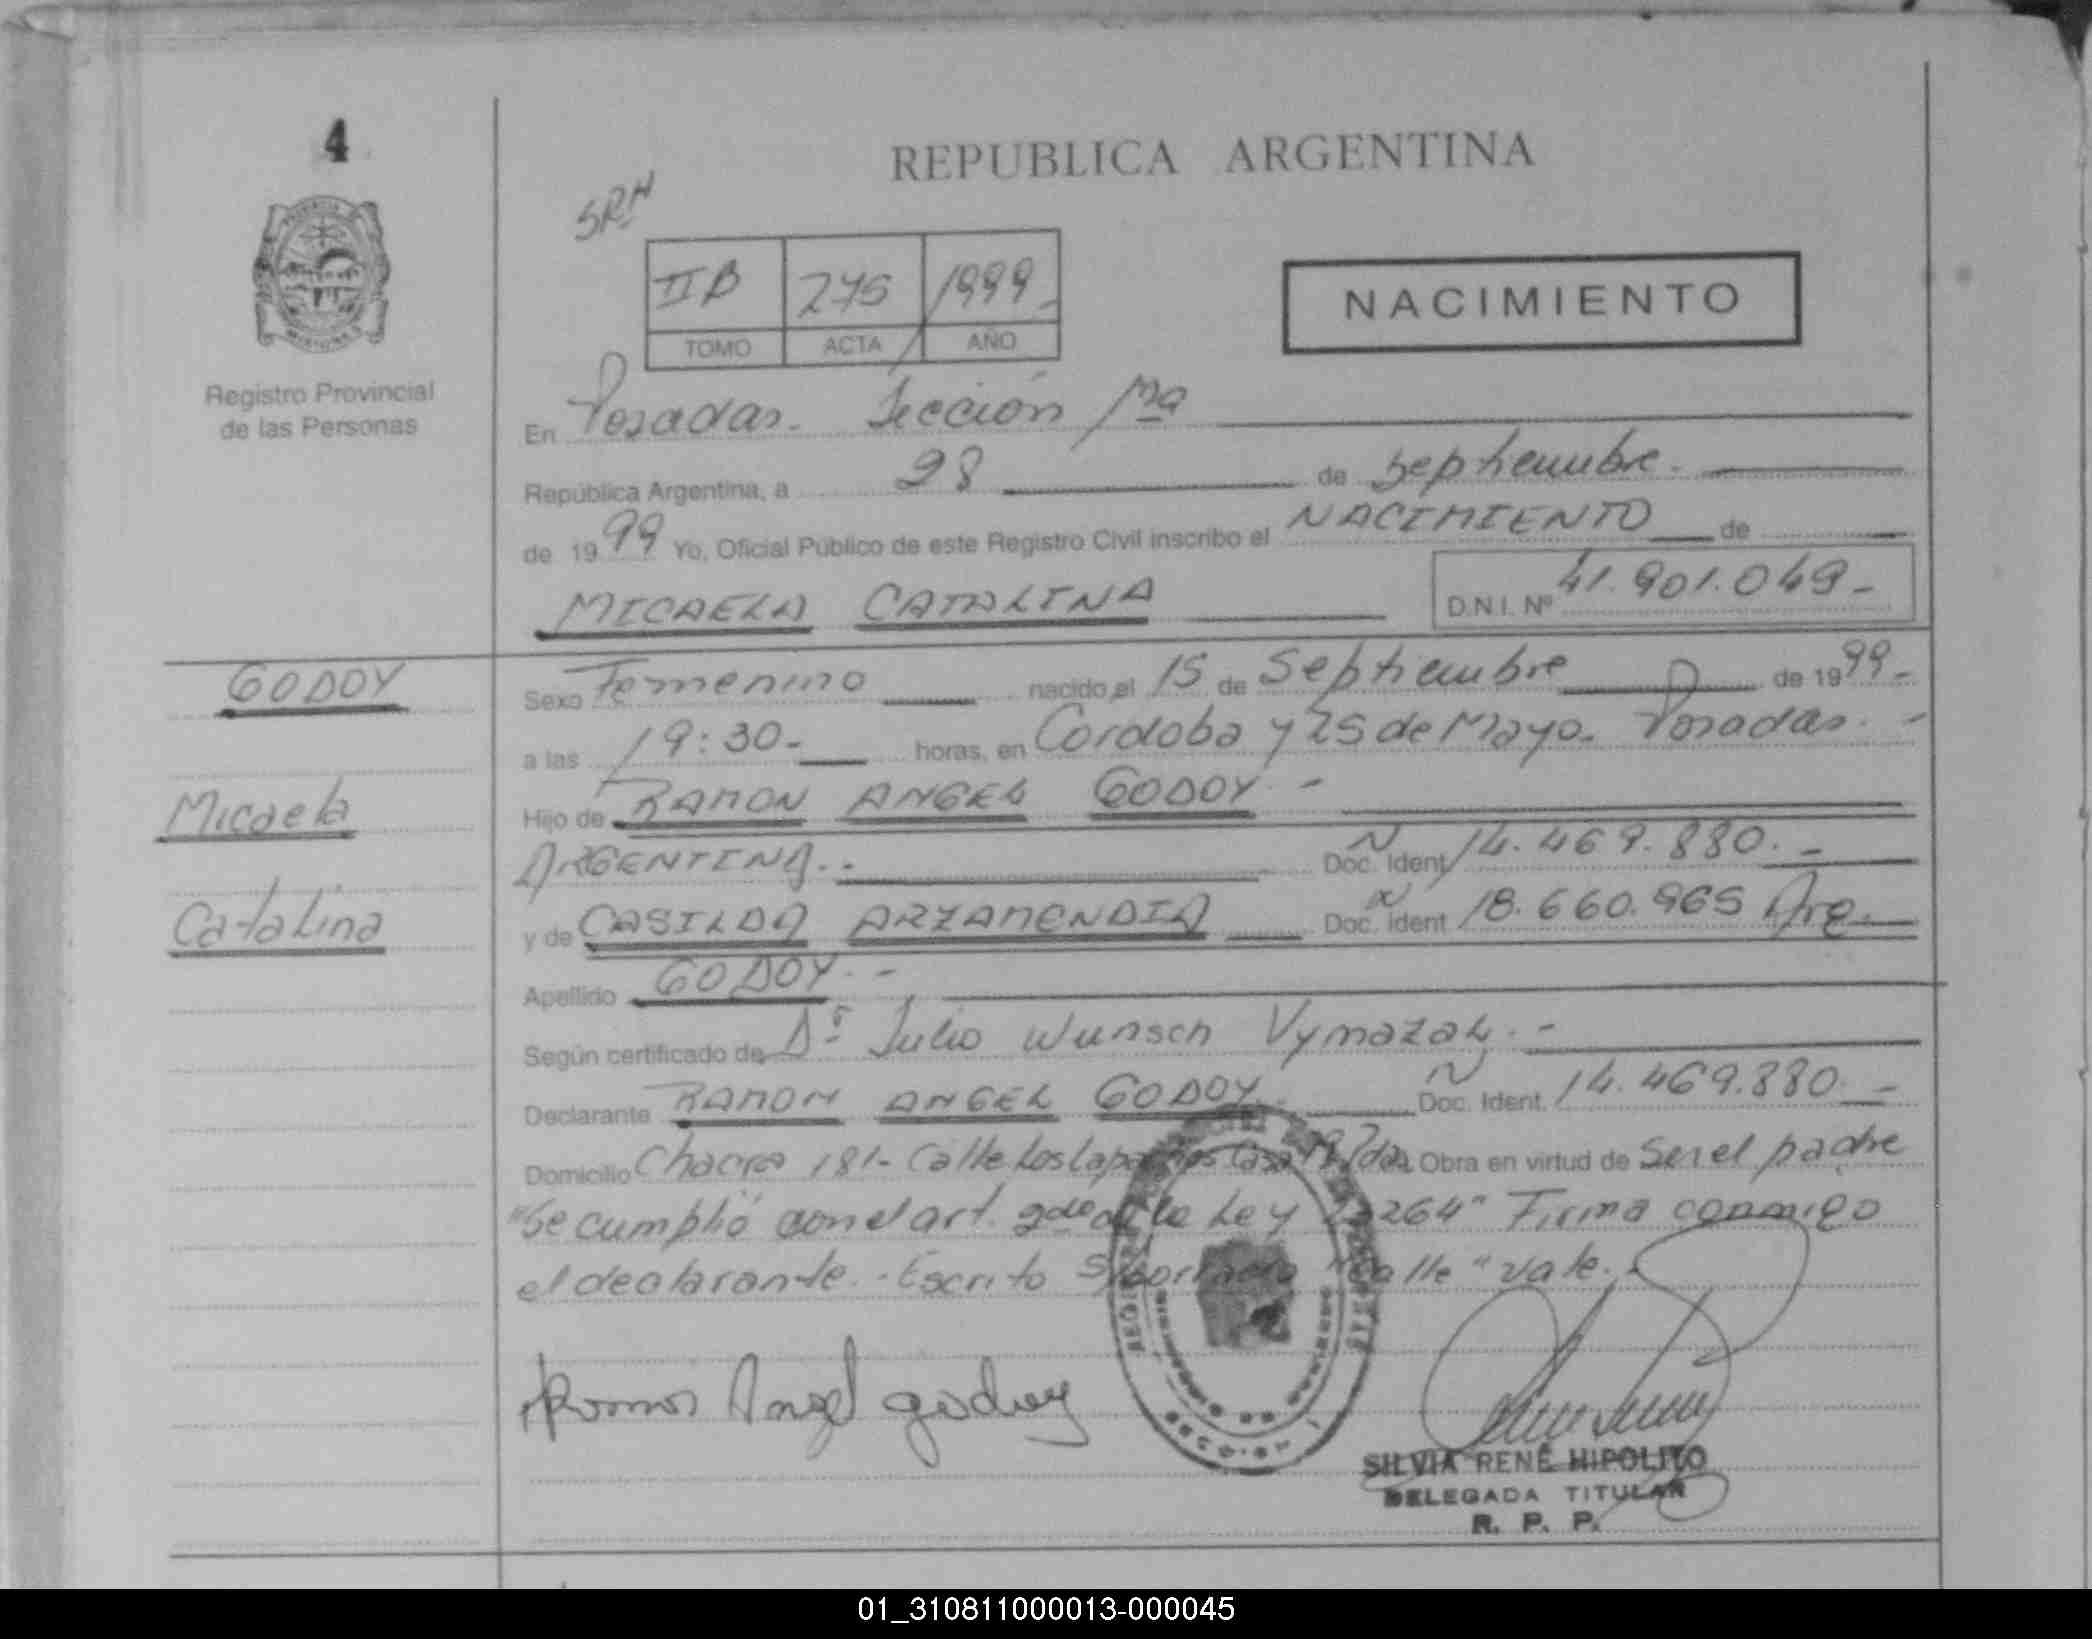 4
Registro Provincial
de las Personas
REPUBLICA ARGENTINA
SRH
IIB 275 1999
TOMO ACTA AÑO
NACIMIENTO
En Posadas. Sección 1ra
República Argentina, a 28 de Septiembre.
de 1999 Yo, Oficial Público de este Registro Civil inscribo el NACIMIENTO de
MICAELA CATALINA D.N.I. Nº 41.901.049-
GODOY
Micaela
Catalina
Sexo Femenino nacido el 15 de Septiembre de 1999.-
a las 19:30- horas, en Cordoba y 25 de Mayo. Posadas.-
Hijo de RAMON ANGEL GODOY.-
ARGENTINA.- Doc. Ident N 14.469.880.-
y de CASILDA ARZAMENDIA Doc. Ident N 18.660.965 Arg.
Apellido GODOY.-
Según certificado de Dr Julio Wunsch Vymazal.-
Declarante RAMON ANGEL GODOY Doc. Ident. N 14.469.880.-
Domicilio Chacra 181- Calle Los Lapachos Casa Obra en virtud de Ser el padre
"Se cumplió con el art. 2do de la Ley 264" Firma conmigo
el declarante.- Escrito S/borrado "Calle" vale.-
Ramon Angel godoy
SILVIA RENÉ HIPOLITO
DELEGADA TITULAR
R. P. P.
01_310811000013-000045